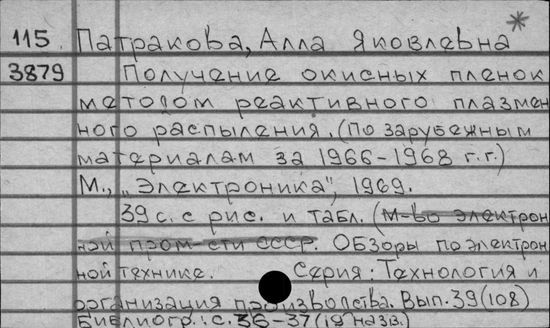 115. Патракова, Алла Яковлевна *
3879 Получение окисных пленок
методом реактивного плазмен
ного распыления. (По зарубежным
материалам за 1966-1968 г.г.)
М., „Электроника", 1969.
39 с. с рис. и табл. (М-во электрон
ной пром-сти СССР. Обзоры по электрон
ной технике. Серия: Технология и
организация производства. Вып. 39(108)
Библиогр.: с. 36-37 (19 назв.)